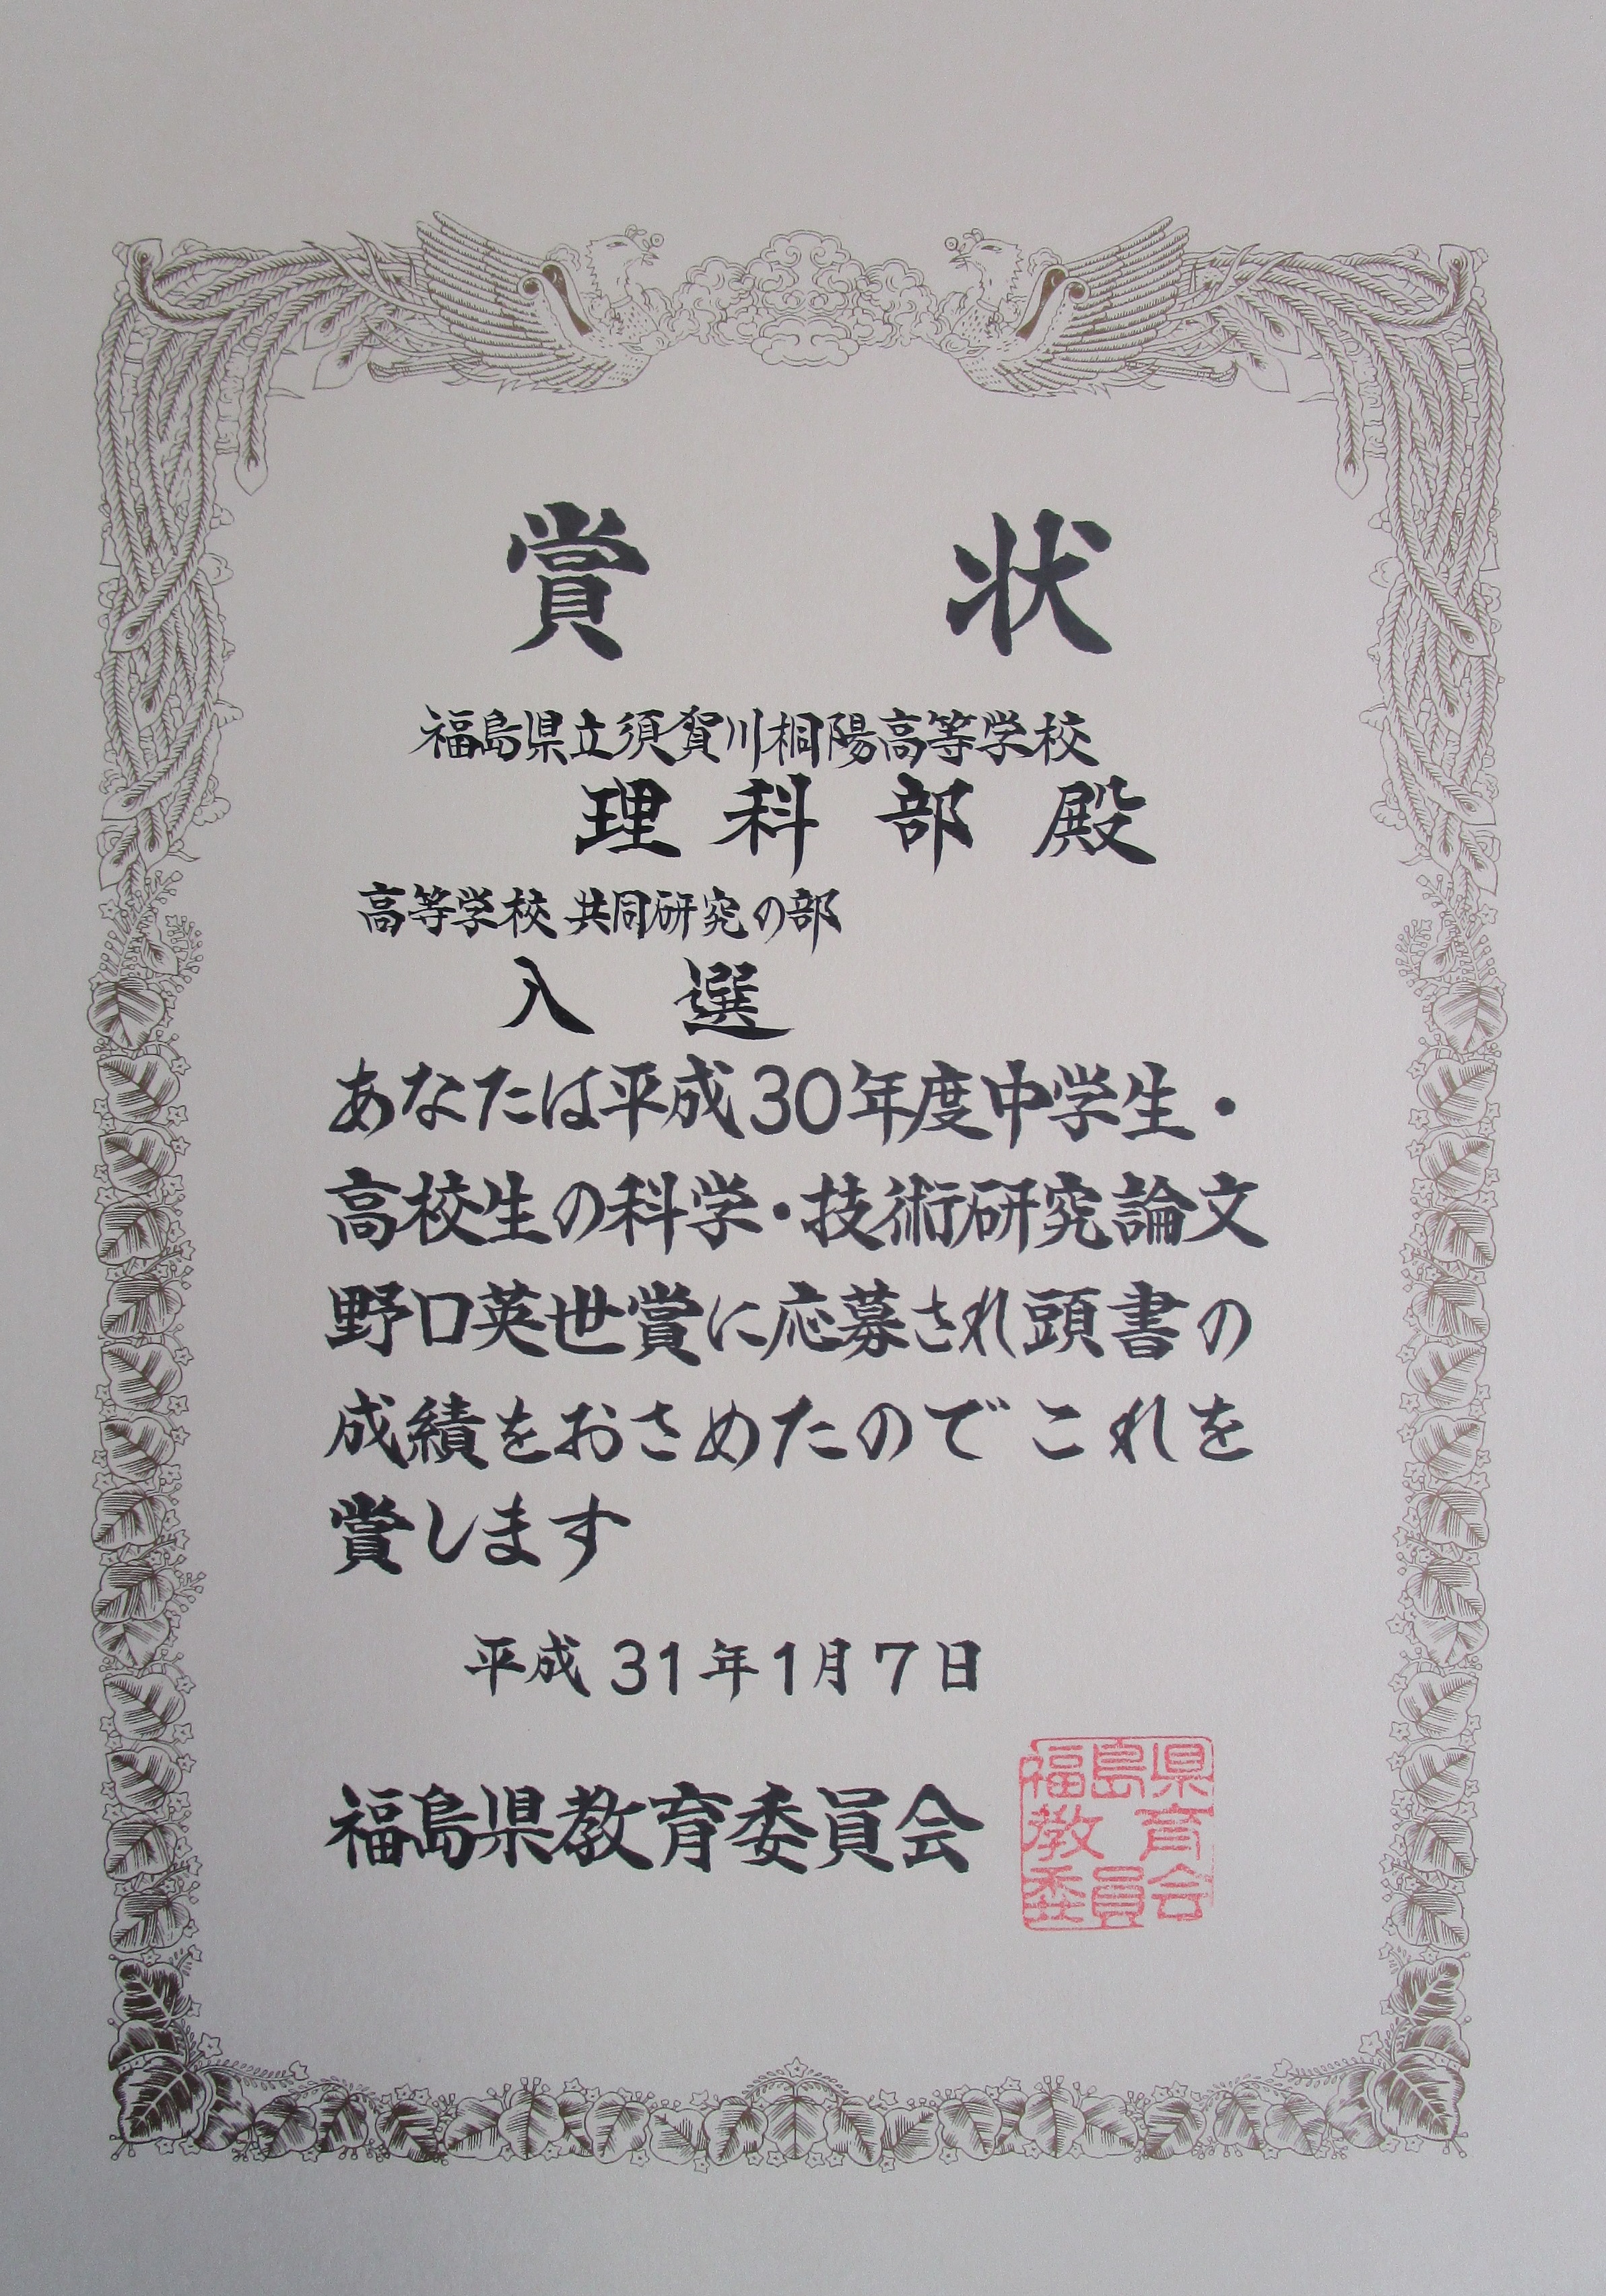 賞状
福島県立須賀川桐陽高等学校
理科部殿
高等学校 共同研究の部
入選
あなたは平成30年度中学生・
高校生の科学・技術研究論文
野口英世賞に応募され頭書の
成績をおさめたので これを
賞します
平成31年1月7日
福島県教育委員会
福島県
教育
委員会